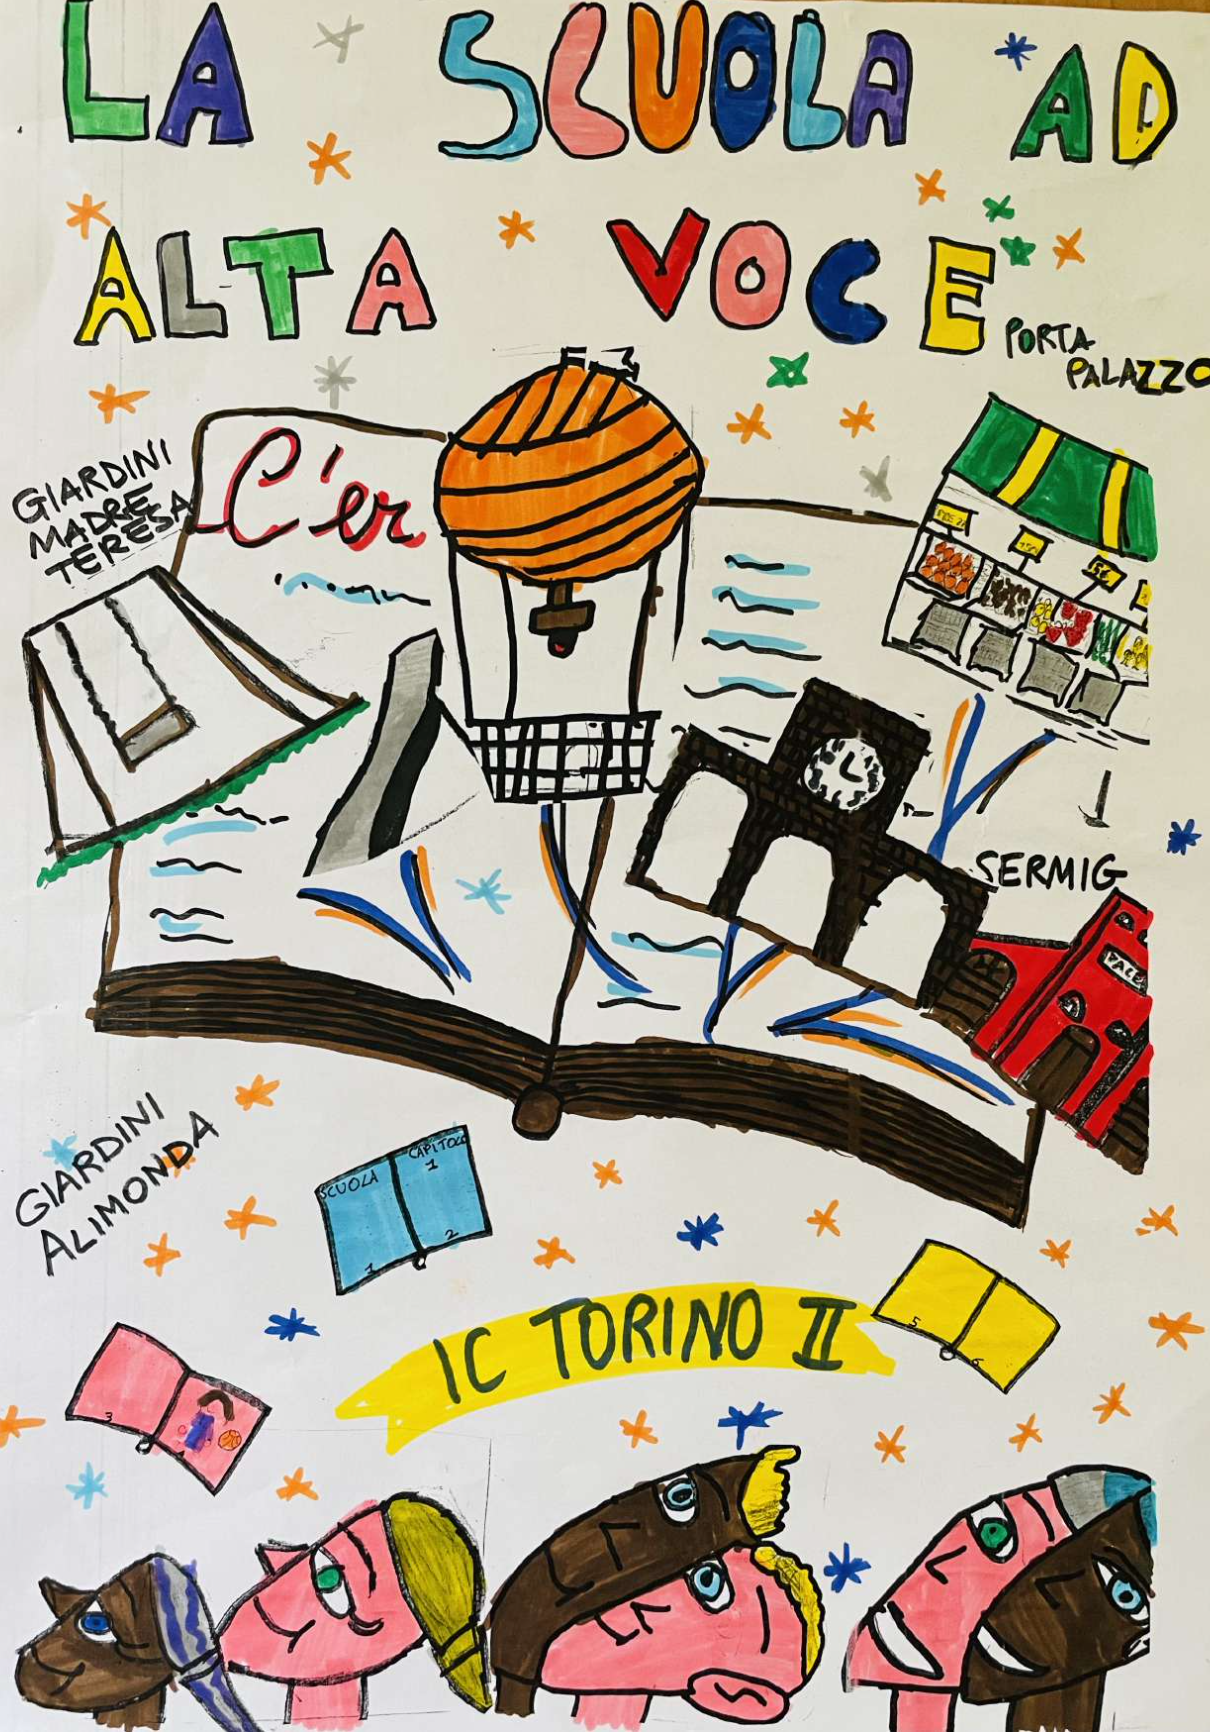 LA SCUOLA AD
ALTA VOCE
PORTA
PALAZZO
GIARDINI
MADRE
TERESA
C'er
SERMIG
PACE
GIARDINI
ALIMONDA
SCUOLA
CAPITOLO
1
1
2
IC TORINO II
5
6
3